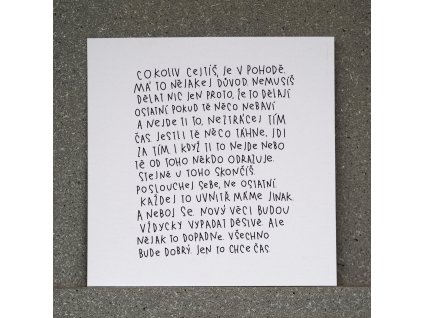 COKOLIV CEJTÍŠ, JE V POHODĚ.
MÁ TO NĚJAKEJ DŮVOD. NEMUSÍŠ
DĚLAT NIC JEN PROTO, ŽE TO DĚLAJÍ
OSTATNÍ. POKUD TĚ NĚCO NEBAVÍ
A NEJDE TI TO, NEZTRÁCEJ TÍM
ČAS. JESTLI TĚ NĚCO TÁHNE, JDI
ZA TÍM I KDYŽ TI TO NEJDE NEBO
TĚ OD TOHO NĚKDO ODRAZUJE.
STEJNĚ U TOHO SKONČÍŠ.
POSLOUCHEJ SEBE, NE OSTATNÍ.
KAŽDEJ TO UVNITŘ MÁME JINAK.
A NEBOJ SE. NOVÝ VĚCI BUDOU
VŽDYCKY VYPADAT DĚSIVĚ. ALE
NĚJAK TO DOPADNE. VŠECHNO
BUDE DOBRÝ. JEN TO CHCE ČAS.